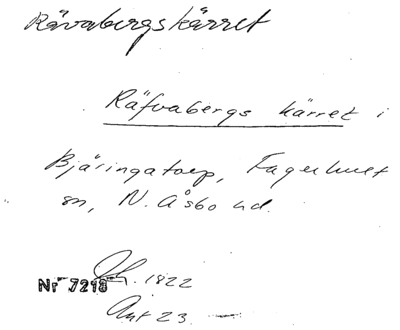 Rävabergskärret
Räfvabergs kärret i
Bjäringatorp, Fagerhult
sn, N. Åsbo hd.
1822
Nr 7218
Ant 23